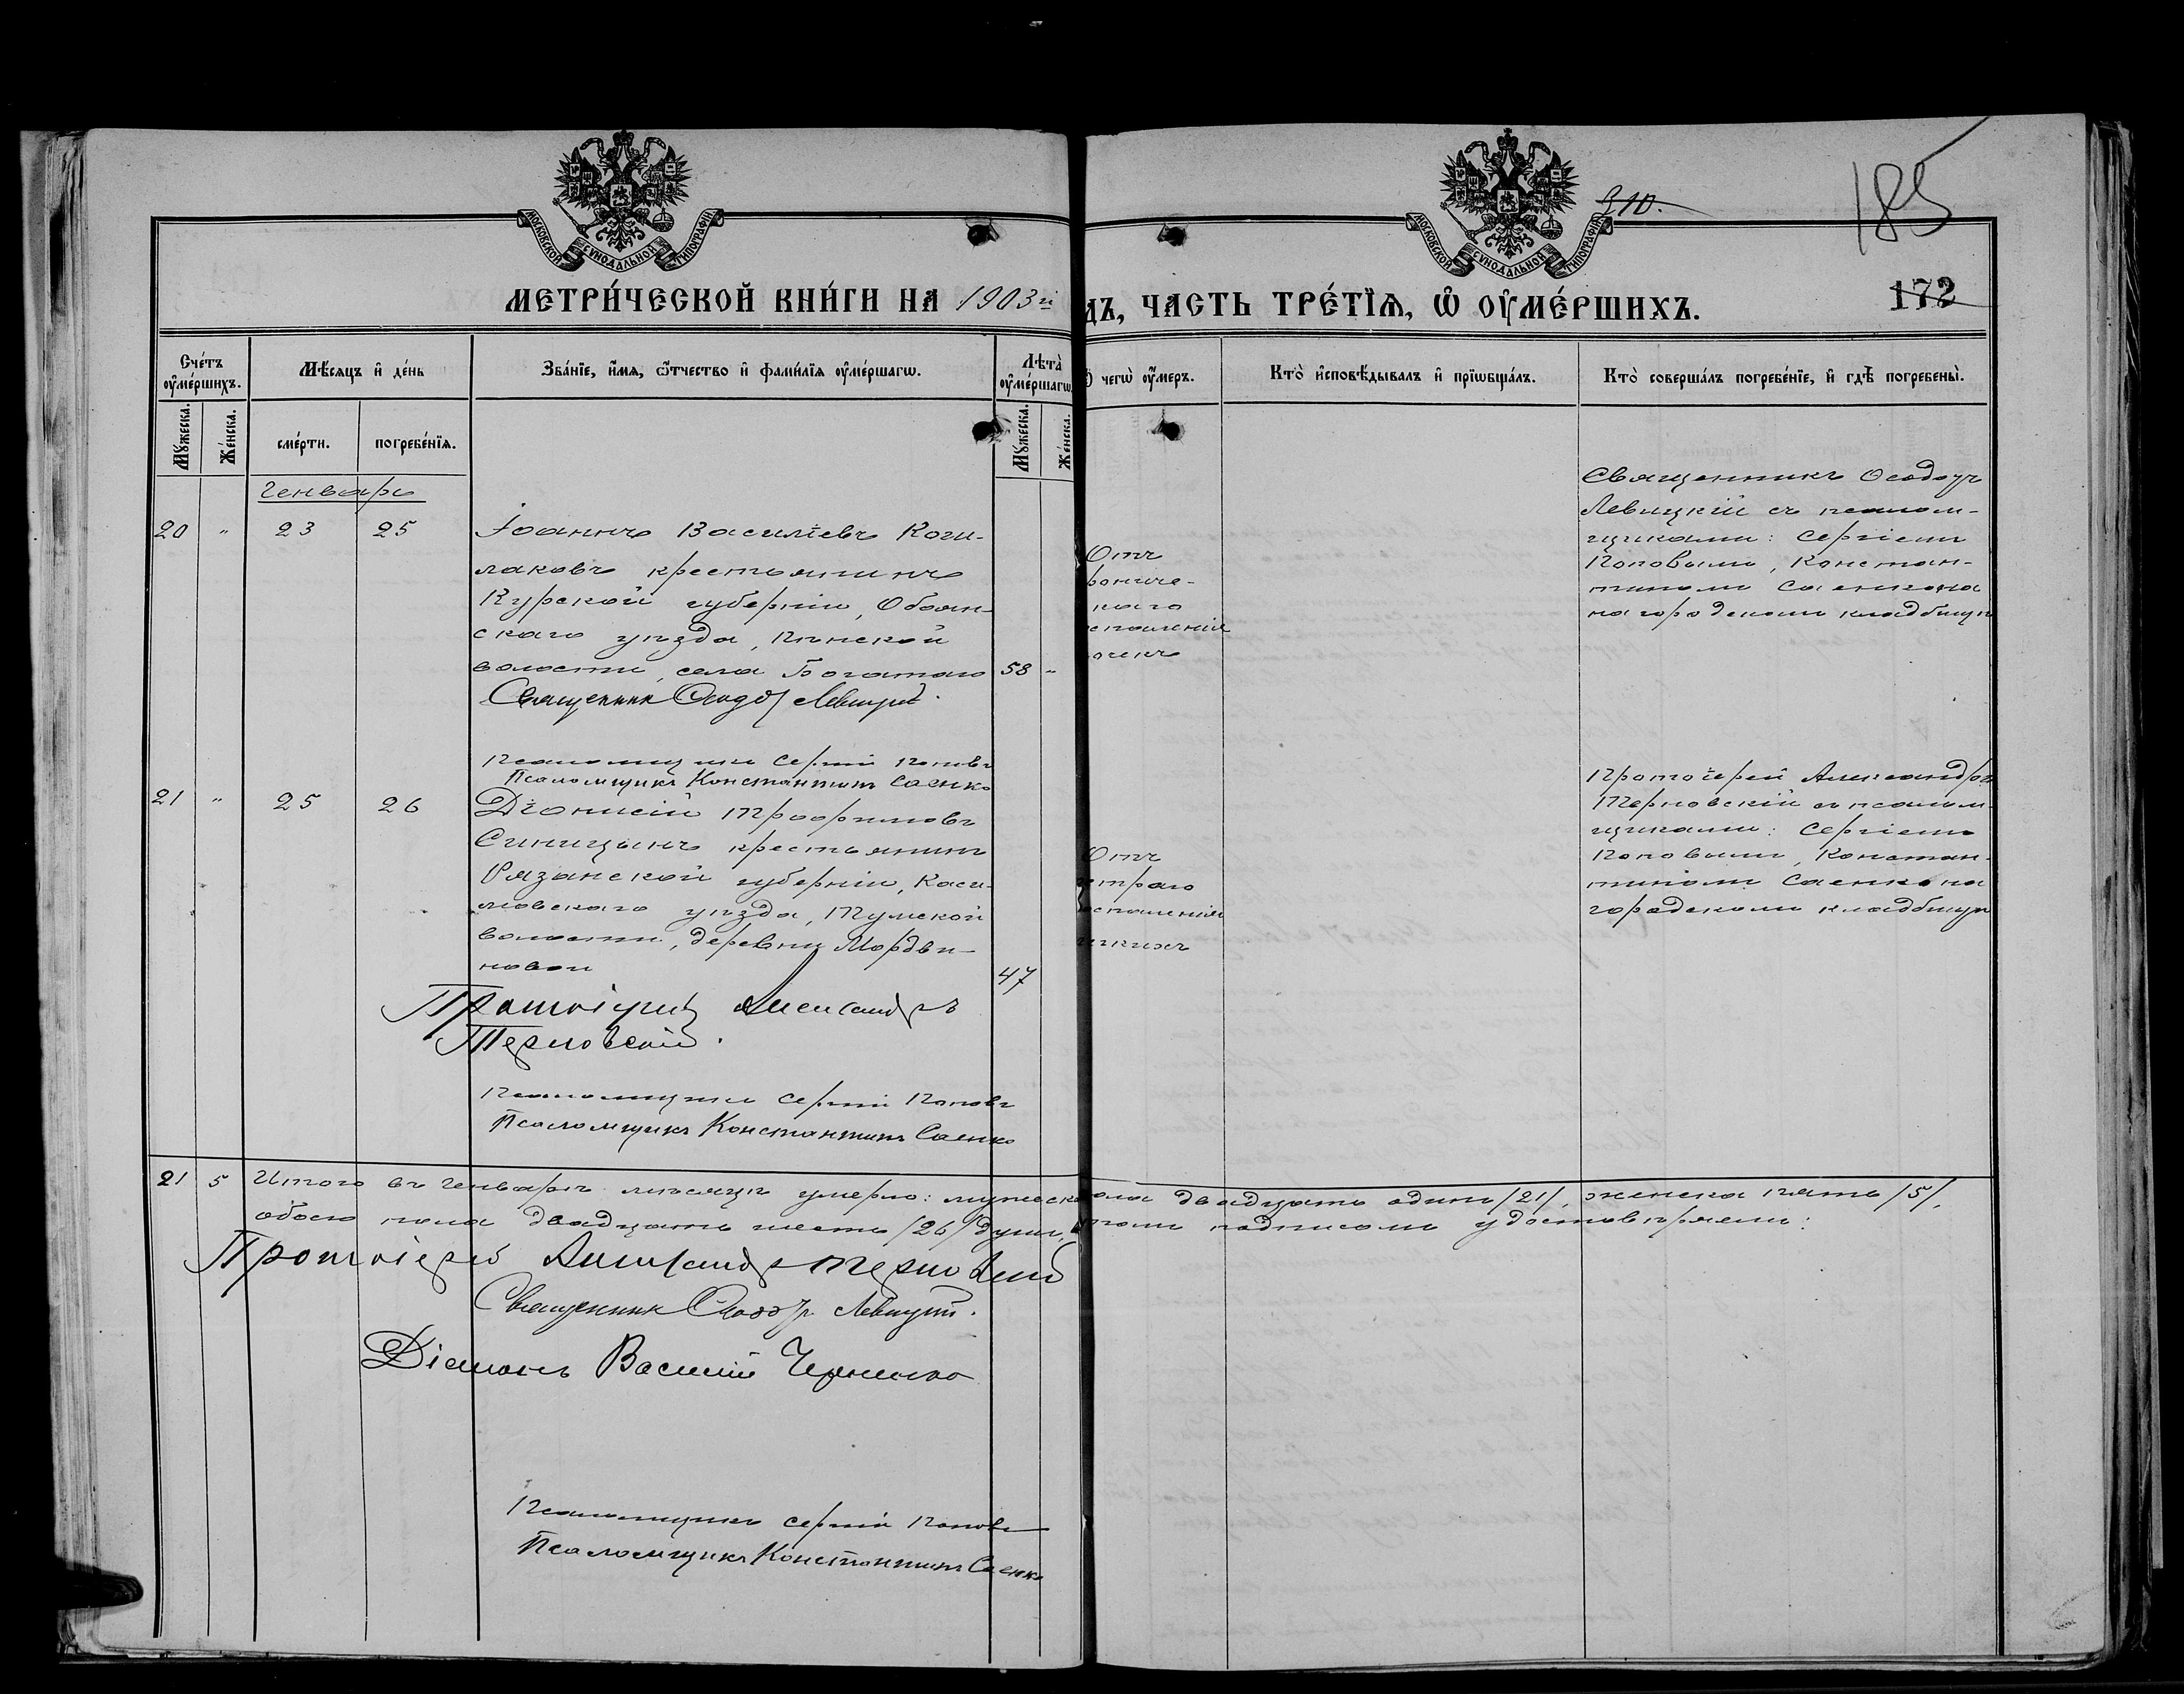 МОСКОВСКОЙ СѴНОДАЛЬНОЙ ТИПОГРАФІИ
МОСКОВСКОЙ СѴНОДАЛЬНОЙ ТИПОГРАФІИ
310.
185
172
МЕТРИ́ЧЕСКОЙ КНИ́ГИ НА 1903й
дъ, ЧАСТЬ ТРЕ́ТІѦ, Ѿ ОУМЕ́РШИХЪ.
Сче́тъ оумершихъ.
Мѣсяцъ и де́нь
Зва́нїе, и́мя, о́тчество и фами́лїя оуме́ршагѡ.
Лѣта̀ оуме́ршагѡ
чегѡ̀ оумеръ.
Кто̀ и́сповѣ́дывалъ и прїѡбща́лъ.
Кто̀ соверша́лъ погребе́нїе, и гдѣ̀ погребены̀.
Мꙋжеска.
Же́нска.
сме́рти.
погребе́нїя.
Мꙋжеска.
Же́нска.
Генварь
20 " 23 25
Іоаннъ Василіевъ Коги-
лаковъ крестьянинъ
Курской губерніи, Обоян-
скаго уѣзда,
волости, села Богатаго 58 "
Священник Ѳеодоръ Левицкій.
Псаломщикъ Сергій Поповъ
Псаломщикъ Константинъ Саенко
Отъ
рониче-
каго
спаленія
очекъ
Священникъ Ѳеодоръ
Левицкій съ псалом-
щиками: Сергіемъ
Поповымъ, Констан-
тиномъ Саенко на
на городскомъ кладбищѣ
21 " 25 26
Діонисій Трофимовъ
Синицынъ крестьянинъ
Рязанской губерніи, Каси-
мовскаго уѣзда, Тумской
волости, деревни Мордви-
новой 47
Протоіерей Александръ
Терновскій.
Псаломщикъ Сергій Поповъ
Псаломщикъ Константинъ Саенко
Отъ
страго
оспаленія
ишкихъ
Протоіерей Александръ
Терновскій съ псалом-
щиками: Сергіемъ
Поповымъ, Констан-
тиномъ Саенко на
городскомъ кладбищѣ
21 5 Итого въ Генварѣ мѣсяцѣ умерло: мужеска пола двадцать одинъ /21/, женска пять /5/,
обоего пола двадцать шесть /26/ душъ, въ томъ подписомъ удостовѣряемъ:
Протоіерей Александръ Терновскій
Священник Ѳеодоръ Левицкій.
Діаконъ Василій Черненко
Псаломщикъ Сергій Поповъ
Псаломщикъ Константинъ Саенко